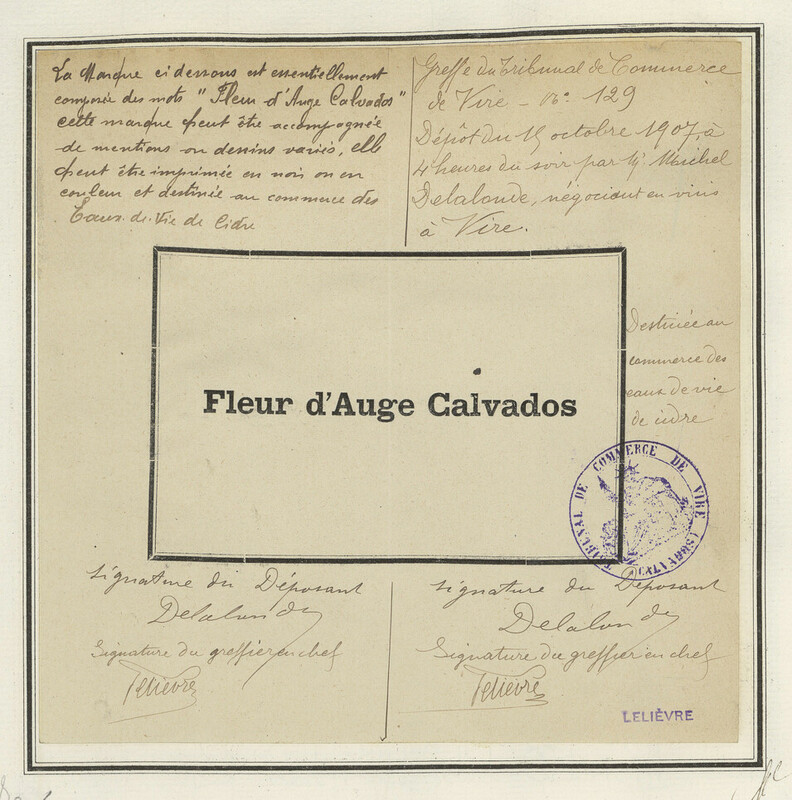 La Marque ci dessous est essentiellement
composée des mots " Fleur d'Auge Calvados "
cette marque peut être accompagnée
de mentions ou dessins variés, elle
peut être imprimée en noir ou en
couleur et destinée au commerce des
Eaux-de-Vie de Cidre
Greffe du Tribunal de Commerce
de Vire - No. 129
Dépôt du 15 octobre 1907, à
4 heures du soir par M Michel
Delalonde, négociant en vins
à Vire.
Fleur d'Auge Calvados
Destinée au
commerce des
eaux de vie
de cidre
TRIBUNAL DE COMMERCE DE VIRE (CALVADOS)
Signature du Déposant
Delalonde
Signature du greffier en chef
Lelièvre
Signature du Déposant
Delalonde
Signature du greffier en chef
Lelièvre
LELIÈVRE